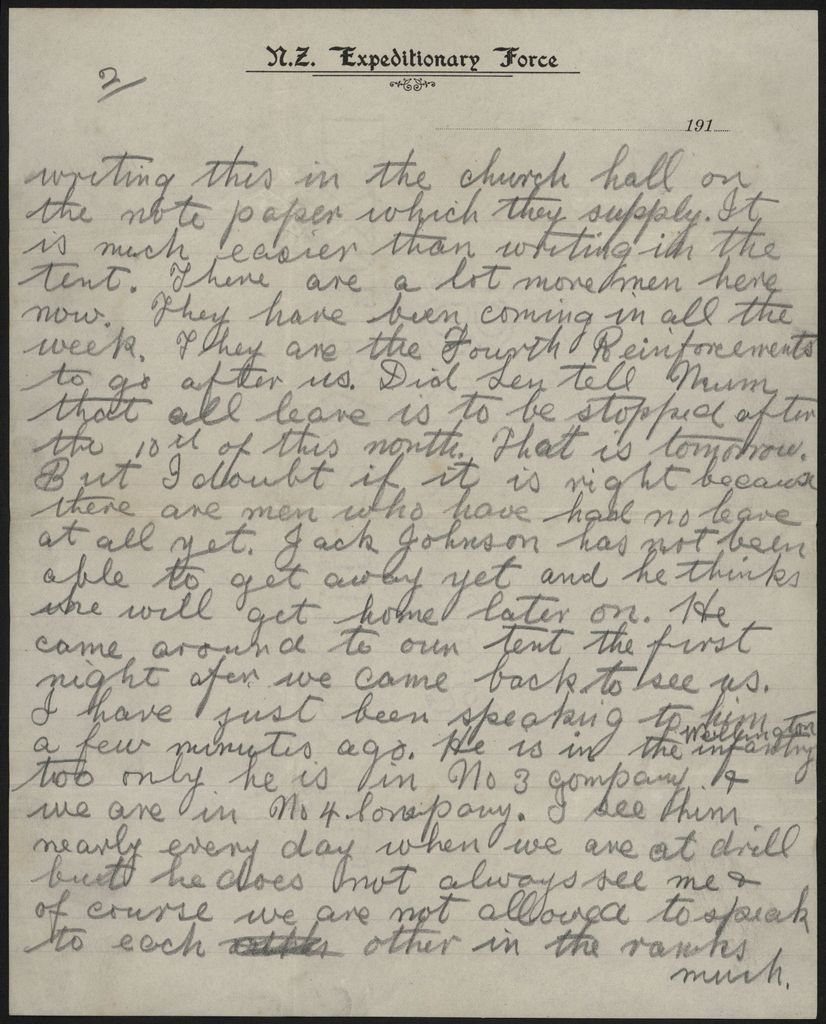 N.Z. Expeditionary Force
2
191
writing this in the church hall on
the note paper which they supply. It
is much easier than writing in the
tent. There are a lot more men here
now. They have been coming in all the
week. They are the Fourth Reinforcements
to go after us. Did Len tell Mum
that all leave is to be stopped after
the 10th of this month. That is tomorrow.
But I doubt if it is right because
there are men who have had no leave
at all yet. Jack Johnson has not been
able to get away yet and he thinks
he will get home later on. He
came around to our tent the first
night after we came back to see us.
I have just been speaking to him
a few minutes ago. He is in the Wellington infantry
too only he is in No 3 company &
we are in No 4 Company. I see him
nearly every day when we are at drill
but he does not always see me &
of course we are not allowed to speak
to each other in the ranks
much.